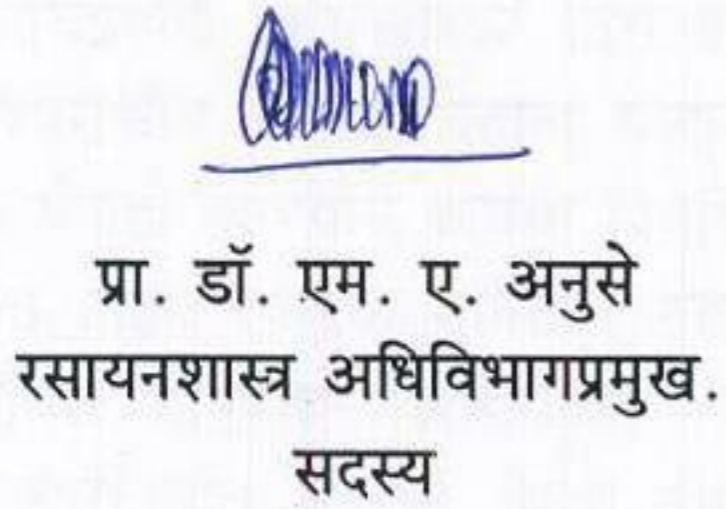 प्रा. डॉ. एम. ए. अनुसे
रसायनशास्त्र अधिविभागप्रमुख.
सदस्य